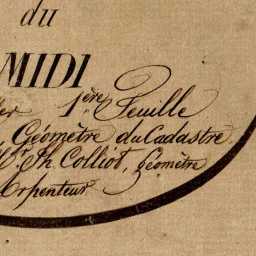 du
MIDI
1ère Feuille
Géomètre du Cadastre
Mr Ph Colliot, Géomètre
Arpenteur